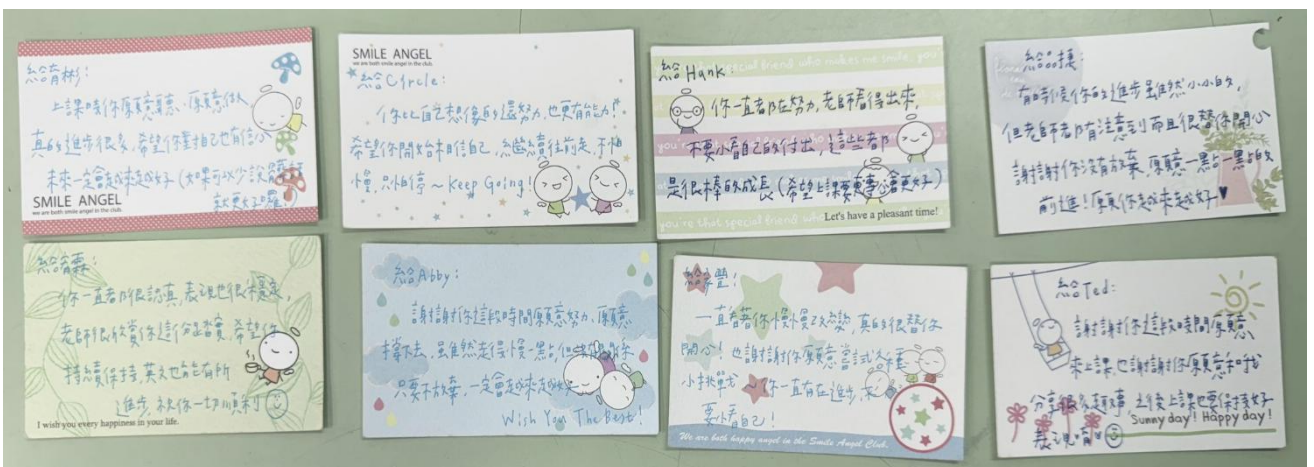 給育彬:
上課時你願意聽、願意做
真的進步很多,希望你對自己也有信心
未來一定會越來越好(如果可以少說
就更好囉!)
SMILE ANGEL
we are both smile angel in the club.
SMILE ANGEL
we are both smile angel in the club.
給Circle:
你比自己想像的還努力,也更有能力!
希望你開始相信自己,繼續往前走,不怕
慢,只怕停~Keep Going!
給Hank:
你一直都在努力,老師看得出來,
不要小看自己的付出,這些都
是很棒的成長(希望上課要更專心會更好)
Let's have a pleasant time!
給品捷:
有時候你的進步雖然小小的,
但老師都有注意到而且很替你開心
謝謝你沒有放棄,願意一點一點的
前進!願你越來越好♥
給霖:
你一直都很認真,表現也很穩定,
老師很欣賞你這份踏實,希望你
持續保持,英文也能有所
進步,祝你一切順利
I wish you every happiness in your life.
給Abby:
謝謝你這段時間願意努力、願意
撐下去,雖然走得慢一點,但
只要不放棄,一定會越來越好
Wish You The Best!
給家豐!
一直看著你慢慢改變,真的很替你
開心!也謝謝你願意嘗試各種
小挑戰~你一直有在進步,
要小看自己!
We are both happy angel in the Smile Angel Club.
給Ted:
謝謝你這段時間願意
來上課,也謝謝你願意和我
分享很多趣事,之後上課也要保持好
表現唷!
Sunny day! Happy day!